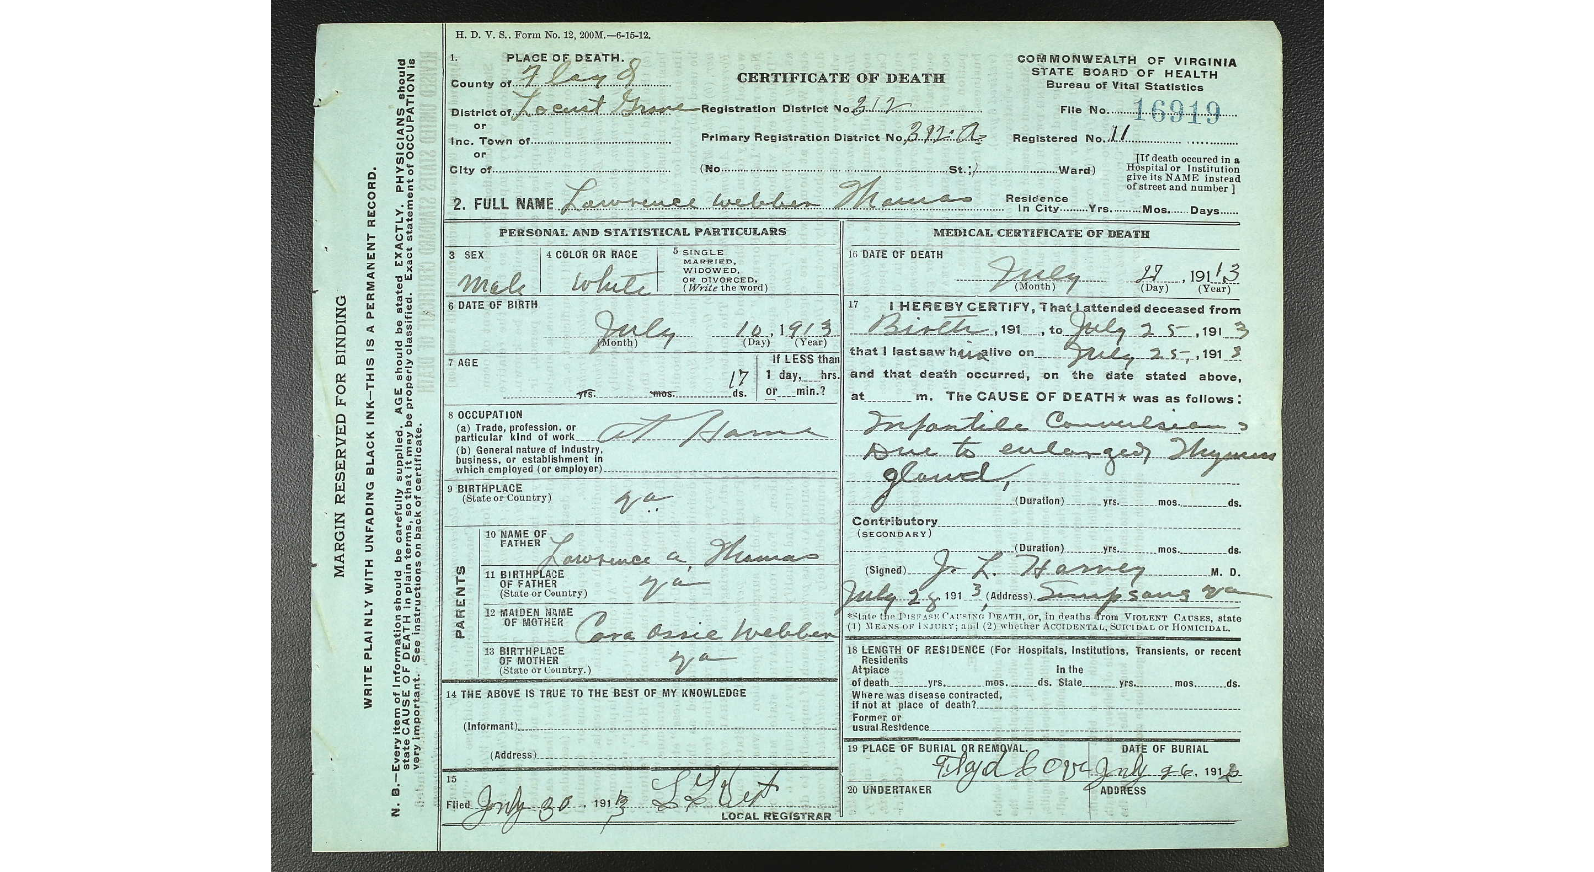 H. D. V. S., Form No. 12, 200M.—6-15-12.
1. PLACE OF DEATH.
County of Floyd
District of Locust Grove
or
Inc. Town of
or
City of
CERTIFICATE OF DEATH
Registration District No. 312
Primary Registration District No. 312.A
(No. St.; Ward)
COMMONWEALTH OF VIRGINIA
STATE BOARD OF HEALTH
Bureau of Vital Statistics
File No. 16919
Registered No. 11
[If death occured in a
Hospital or Institution
give its NAME instead
of street and number ]
2. FULL NAME Lawrence Webber Thomas
Residence
In City Yrs. Mos. Days
PERSONAL AND STATISTICAL PARTICULARS
3 SEX
Male
4 COLOR OR RACE
White
5 SINGLE
MARRIED,
WIDOWED,
OR DIVORCED,
(Write the word)
6 DATE OF BIRTH
July 10, 1913
(Month) (Day) (Year)
7 AGE
yrs. mos. 17 ds.
If LESS than
1 day, hrs.
or min.?
8 OCCUPATION
(a) Trade, profession, or
particular kind of work At Home
(b) General nature of Industry,
business, or establishment in
which employed (or employer)
9 BIRTHPLACE
(State or Country) Va
PARENTS
10 NAME OF
FATHER Lawrence A. Thomas
11 BIRTHPLACE
OF FATHER
(State or Country) Va
12 MAIDEN NAME
OF MOTHER Cora Ossie Webber
13 BIRTHPLACE
OF MOTHER
(State or Country.) Va
14 THE ABOVE IS TRUE TO THE BEST OF MY KNOWLEDGE
(Informant)
(Address)
15
Filed July 30, 1913
LOCAL REGISTRAR
MEDICAL CERTIFICATE OF DEATH
16 DATE OF DEATH
July 27, 1913
(Month) (Day) (Year)
17 I HEREBY CERTIFY, That I attended deceased from
Birth, 191 , to July 25, 1913
that I last saw him alive on July 25, 1913
and that death occurred, on the date stated above,
at m. The CAUSE OF DEATH* was as follows:
Infantile Convulsions
Due to enlarged Thymus
gland,
(Duration) yrs. mos. ds.
Contributory
(SECONDARY)
(Duration) yrs. mos. ds.
(Signed) J. L. Harvey M. D.
July 28 1913, (Address) Simpsons Va
*State the DISEASE CAUSING DEATH, or, in deaths from VIOLENT CAUSES, state
(1) MEANS OF INJURY; and (2) whether ACCIDENTAL, SUICIDAL or HOMICIDAL.
18 LENGTH OF RESIDENCE (For Hospitals, Institutions, Transients, or recent
Residents
At place In the
of death yrs. mos. ds. State yrs. mos. ds.
Where was disease contracted,
If not at place of death?
Former or
usual Residence
19 PLACE OF BURIAL OR REMOVAL. DATE OF BURIAL
Floyd July 26, 1913
20 UNDERTAKER ADDRESS
MARGIN RESERVED FOR BINDING
WRITE PLAINLY WITH UNFADING BLACK INK—THIS IS A PERMANENT RECORD.
N. B.—Every item of Information should be carefully supplied. AGE should be stated EXACTLY. PHYSICIANS should
state CAUSE OF DEATH in plain terms, so that it may be properly classified. Exact statement of OCCUPATION is
very important. See instructions on back of certificate.